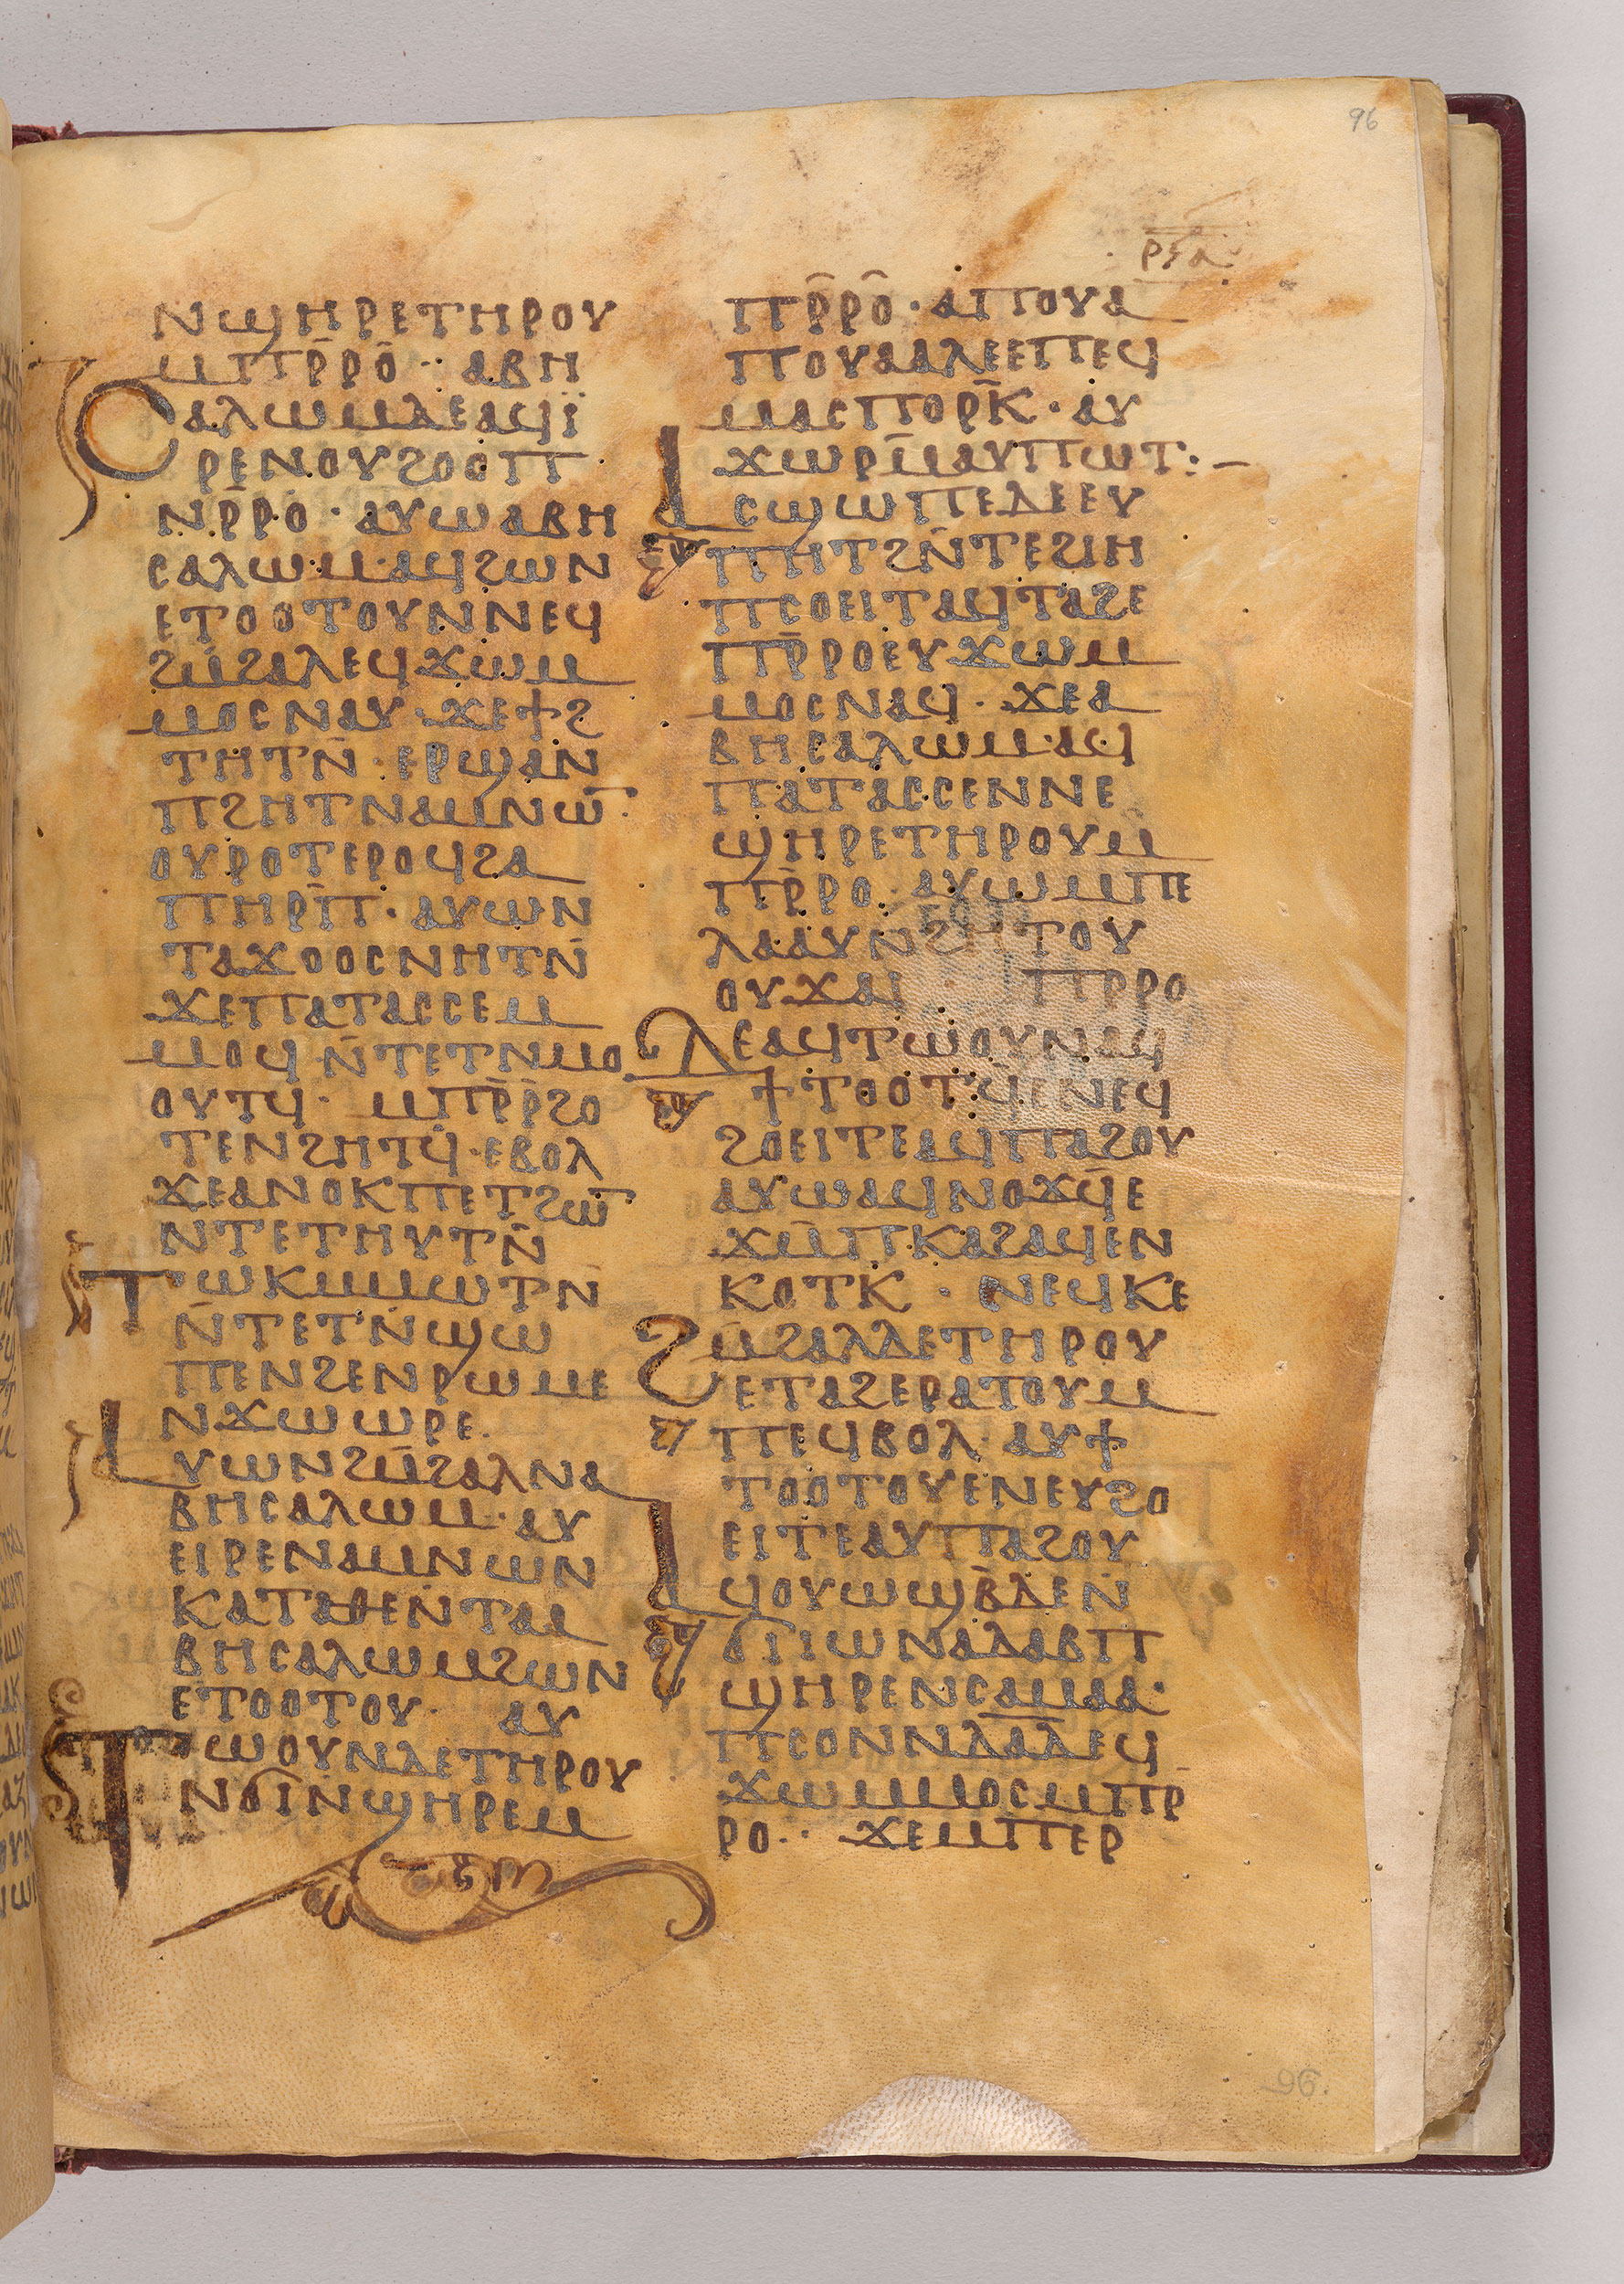 96
ⲣⲝⲁ
ⲛϣⲏⲣⲉⲧⲏⲣⲟⲩ
ⲙⲡⲣ̄ⲣⲟ̂· ⲁⲃⲏ
ⲥⲁⲗⲱⲙⲇⲉⲁϥⲓ̈
ⲣⲉⲛⲟⲩϩⲟⲟⲡ
ⲛⲣ̄ⲣⲟ· ⲁⲩⲱⲁⲃⲏ
ⲥⲁⲗⲱⲙ·ⲁϥϩⲱⲛ
ⲉⲧⲟⲟⲧⲟⲩⲛⲛⲉϥ
ϩⲙ̄ϩⲁⲗⲉϥϫⲱⲙ
ⲙⲟⲥⲛⲁⲩ· ϫⲉϯϩ
ⲧⲏⲧⲛ̄· ⲉⲣϣⲁⲛ
ⲡϩⲏⲧⲛⲁⲙⲛⲱⲧ
ⲟⲩⲣⲟⲧⲉⲣⲟϥϩⲁ
ⲡⲏⲣⲡ̄· ⲁⲩⲱⲛ
ⲧⲁϫⲟⲟⲥⲛⲏⲧⲛ̄
ϫⲉⲡⲁⲧⲁⲥⲥⲉⲙ
ⲙⲟϥ·ⲛ̄ⲧⲉⲧⲛⲙⲟ
ⲟⲩⲧϥ· ⲙⲡⲣ̄ⲣ̄ϩⲟ
ⲧⲉⲛϩⲏⲧϥ·ⲉⲃⲟⲗ
ϫⲉⲁⲛⲟⲕⲡⲉⲧϩⲱ
ⲛⲧⲉⲧⲏⲩⲧⲛ̄
ⲧⲱⲕⲙⲙⲱⲧⲛ
ⲛ̄ⲧⲉⲧⲛ̄ϣⲱ
ⲡⲉⲛϩⲉⲛⲣⲱⲙⲉ
ⲛϫⲱⲱⲣⲉ.
ⲁⲩⲱⲛϩⲙ̄ϩⲁⲗⲛⲁ
ⲃⲏⲥⲁⲗⲱⲙ·ⲁⲩ
ⲉⲓⲣⲉⲛⲁⲙⲛⲱⲛ
ⲕⲁⲧⲁⲑⲉⲛ̄ⲧⲁⲁ
ⲃⲏⲥⲁⲗⲱⲙϩⲱⲛ
ⲉⲧⲟⲟⲧⲟⲩ· ⲁⲩ
ⲧⲱⲟⲩⲛⲇⲉⲧⲏⲣⲟⲩ
ⲛϭⲓⲛϣⲏⲣⲉⲙ
ⲡⲣ̄ⲣⲟ̂· ⲁⲡⲟⲩⲁ
ⲡⲟⲩⲁⲁⲗⲉⲉⲡⲉϥ
ⲙⲁⲥⲡⲟⲣⲕ̄· ⲁⲩ
ϫⲱⲣⲙ̄ⲁⲩⲡⲱⲧ:–
ⲁⲥϣⲱⲡⲉⲇⲉⲉⲩ
ⲡⲏⲧϩⲛ̄ⲧⲉϩⲓⲏ
ⲡⲥⲟⲉⲓⲧⲁϥⲧⲁϩⲉ
ⲡⲣ̄ⲣⲟⲉⲩϫⲱⲙ
ⲙⲟⲥⲛⲁϥ· ϫⲉⲁ
ⲃⲏⲥⲁⲗⲱⲙ·ⲁϥ
ⲡⲁⲧⲁⲥⲥⲉⲛⲛⲉ
ϣⲏⲣⲉⲧⲏⲣⲟⲩⲙ
ⲡⲣ̄ⲣⲟ· ⲁⲩⲱⲙⲡⲉ
ⲗⲁⲁⲩⲛϩⲏⲧⲟⲩ
ⲟⲩϫⲁⲓ ⲡⲣⲣⲟ
ⲇⲉⲁϥⲧⲱⲟⲩⲛⲁϥ
ϯⲧⲟⲟⲧϥ̄ⲉⲛⲉϥ
ϩⲟⲉⲓⲧⲉⲁϥⲡⲁϩⲟⲩ
ⲁⲩⲱⲁϥⲛⲟϫϥ̄ⲉ
ϫⲙ̄ⲡⲕⲁϩⲁϥⲉⲛ
ⲕⲟⲧⲕ· ⲛⲉϥⲕⲉ
ϩⲙ̄ϩⲁⲗⲇⲉⲧⲏⲣⲟⲩ
ⲉⲧⲁϩⲉⲣⲁⲧⲟⲩⲙ
ⲡⲉϥⲃⲟⲗ ⲁⲩϯ
ⲧⲟⲟⲧⲟⲩⲉⲛⲉⲩϩⲟ
ⲉⲓⲧⲉⲁⲩⲡⲁϩⲟⲩ
ⲁϥⲟⲩⲱϣⲃ̄ⲇⲉⲛ̄
ϭⲓⲓⲱⲛⲁⲇⲁⲃⲡ
ϣⲏⲣⲉⲛⲥⲁⲙⲁⲁ·
ⲡⲥⲟⲛⲛⲇⲁⲇⲉϥ
ϫⲱⲙⲙⲟⲥⲙⲡⲣ̄
ⲣⲟ·· ϫⲉⲙⲡⲉⲣ
96.